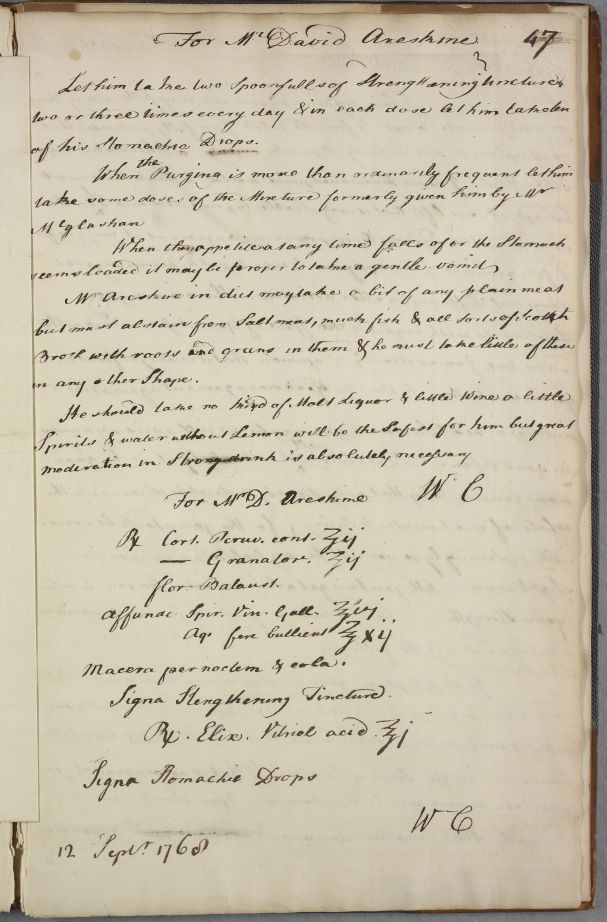 For Mr. David Areskine 47
Let him take two Spoonfulls of Strengthening tincture
two or three times every day & in each dose let him take ten
of his Stomachic Drops.
When the Purging is more than ordinarily frequent let him
take some doses of the Mixture formerly given him by Mr
McGlashan
When the appetite at any time falls of or the Stomach
seems loaded it may be proper to take a gentle vomit,
Mr Areskine in diet may take a bit of any plain meat
but must abstain from Salt meat, much fish & all sorts of Scotch
Broth with roots and greens in them & he must take little of these
in any other Shape.
He should take no kind of Malt Liquor & little Wine a little
Spirits & water without Lemon will be the Safest for him but great
moderation in Strong drink is absolutely necessary
For Mr D. Areskine W C
℞ Cort. Peruv. cont. ℥ij
— Granator. ℥ij
flor Balaust.
affunde Spir. Vin. Gall.
Aq. fere bullient ℥xij
Macera per noctem & cola.
Signa Stengthening Tincture.
℞. Elix. Vitriol acid. ℥j
Signa Stomachic Drops
W C
12 Septr. 1768